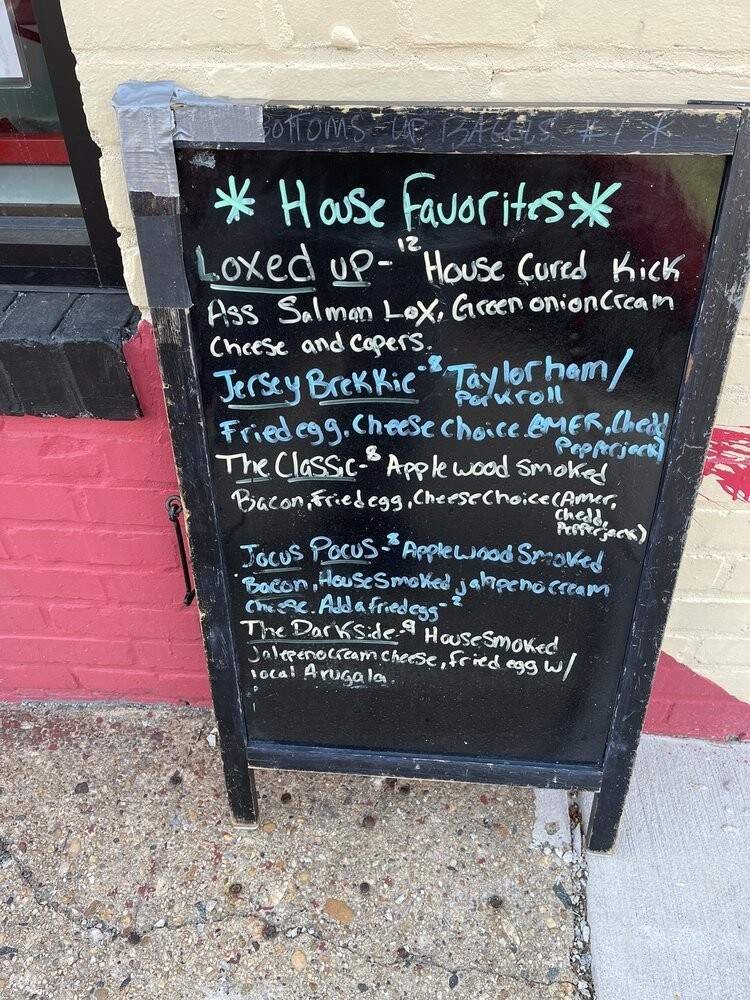 BOTTOMS UP BAGELS #1 *
* House Favorites *
Loxed up - 12 House Cured Kick
Ass Salmon Lox, Green onion Cream
Cheese and Capers.
Jersey Brekkie - 8 Taylor ham/
Porkroll
Fried egg, Cheese choice. AMER, Chedd
Pepperjack)
The Classic - 8 Applewood smoked
Bacon, Fried egg, Cheese Choice (Amer,
Chedd,
Pepperjack)
Jocus Pocus - 8 Applewood Smoked
Bacon, House Smoked jalapeno cream
cheese. Add a fried egg - 2
The Darkside - 9 House Smoked
Jalepeno cream cheese, fried egg w/
local Arugala.